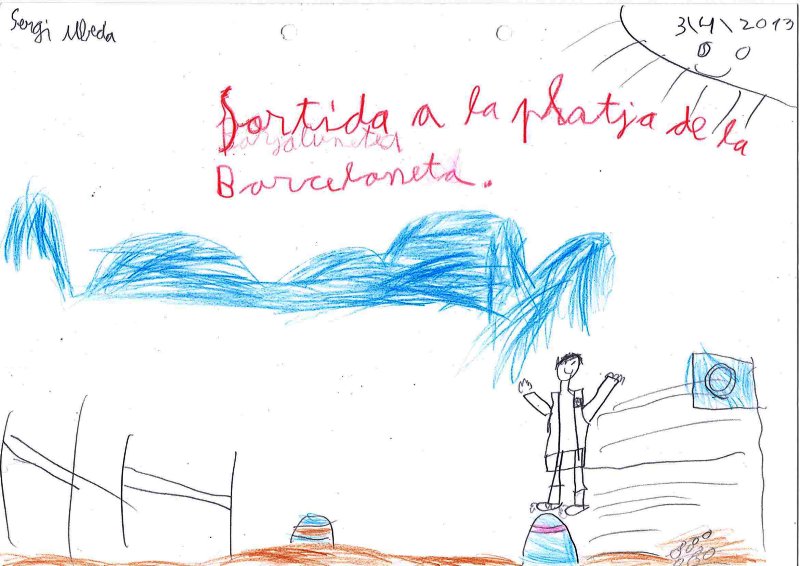 Sergi Ubeda
3\4\2013
Sortida a la platja de la
Barceloneta.